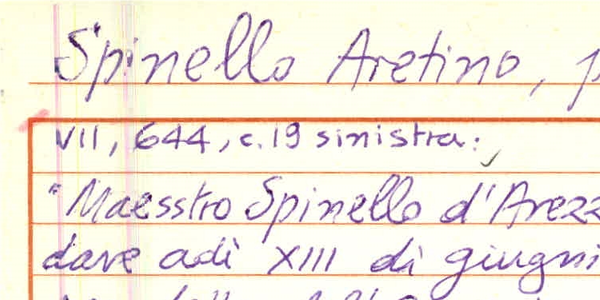 Spinello Aretino, p
VII, 644, c. 19 sinistra:
"Maesstro Spinello d'Arezz
dave adì XIII di giugni